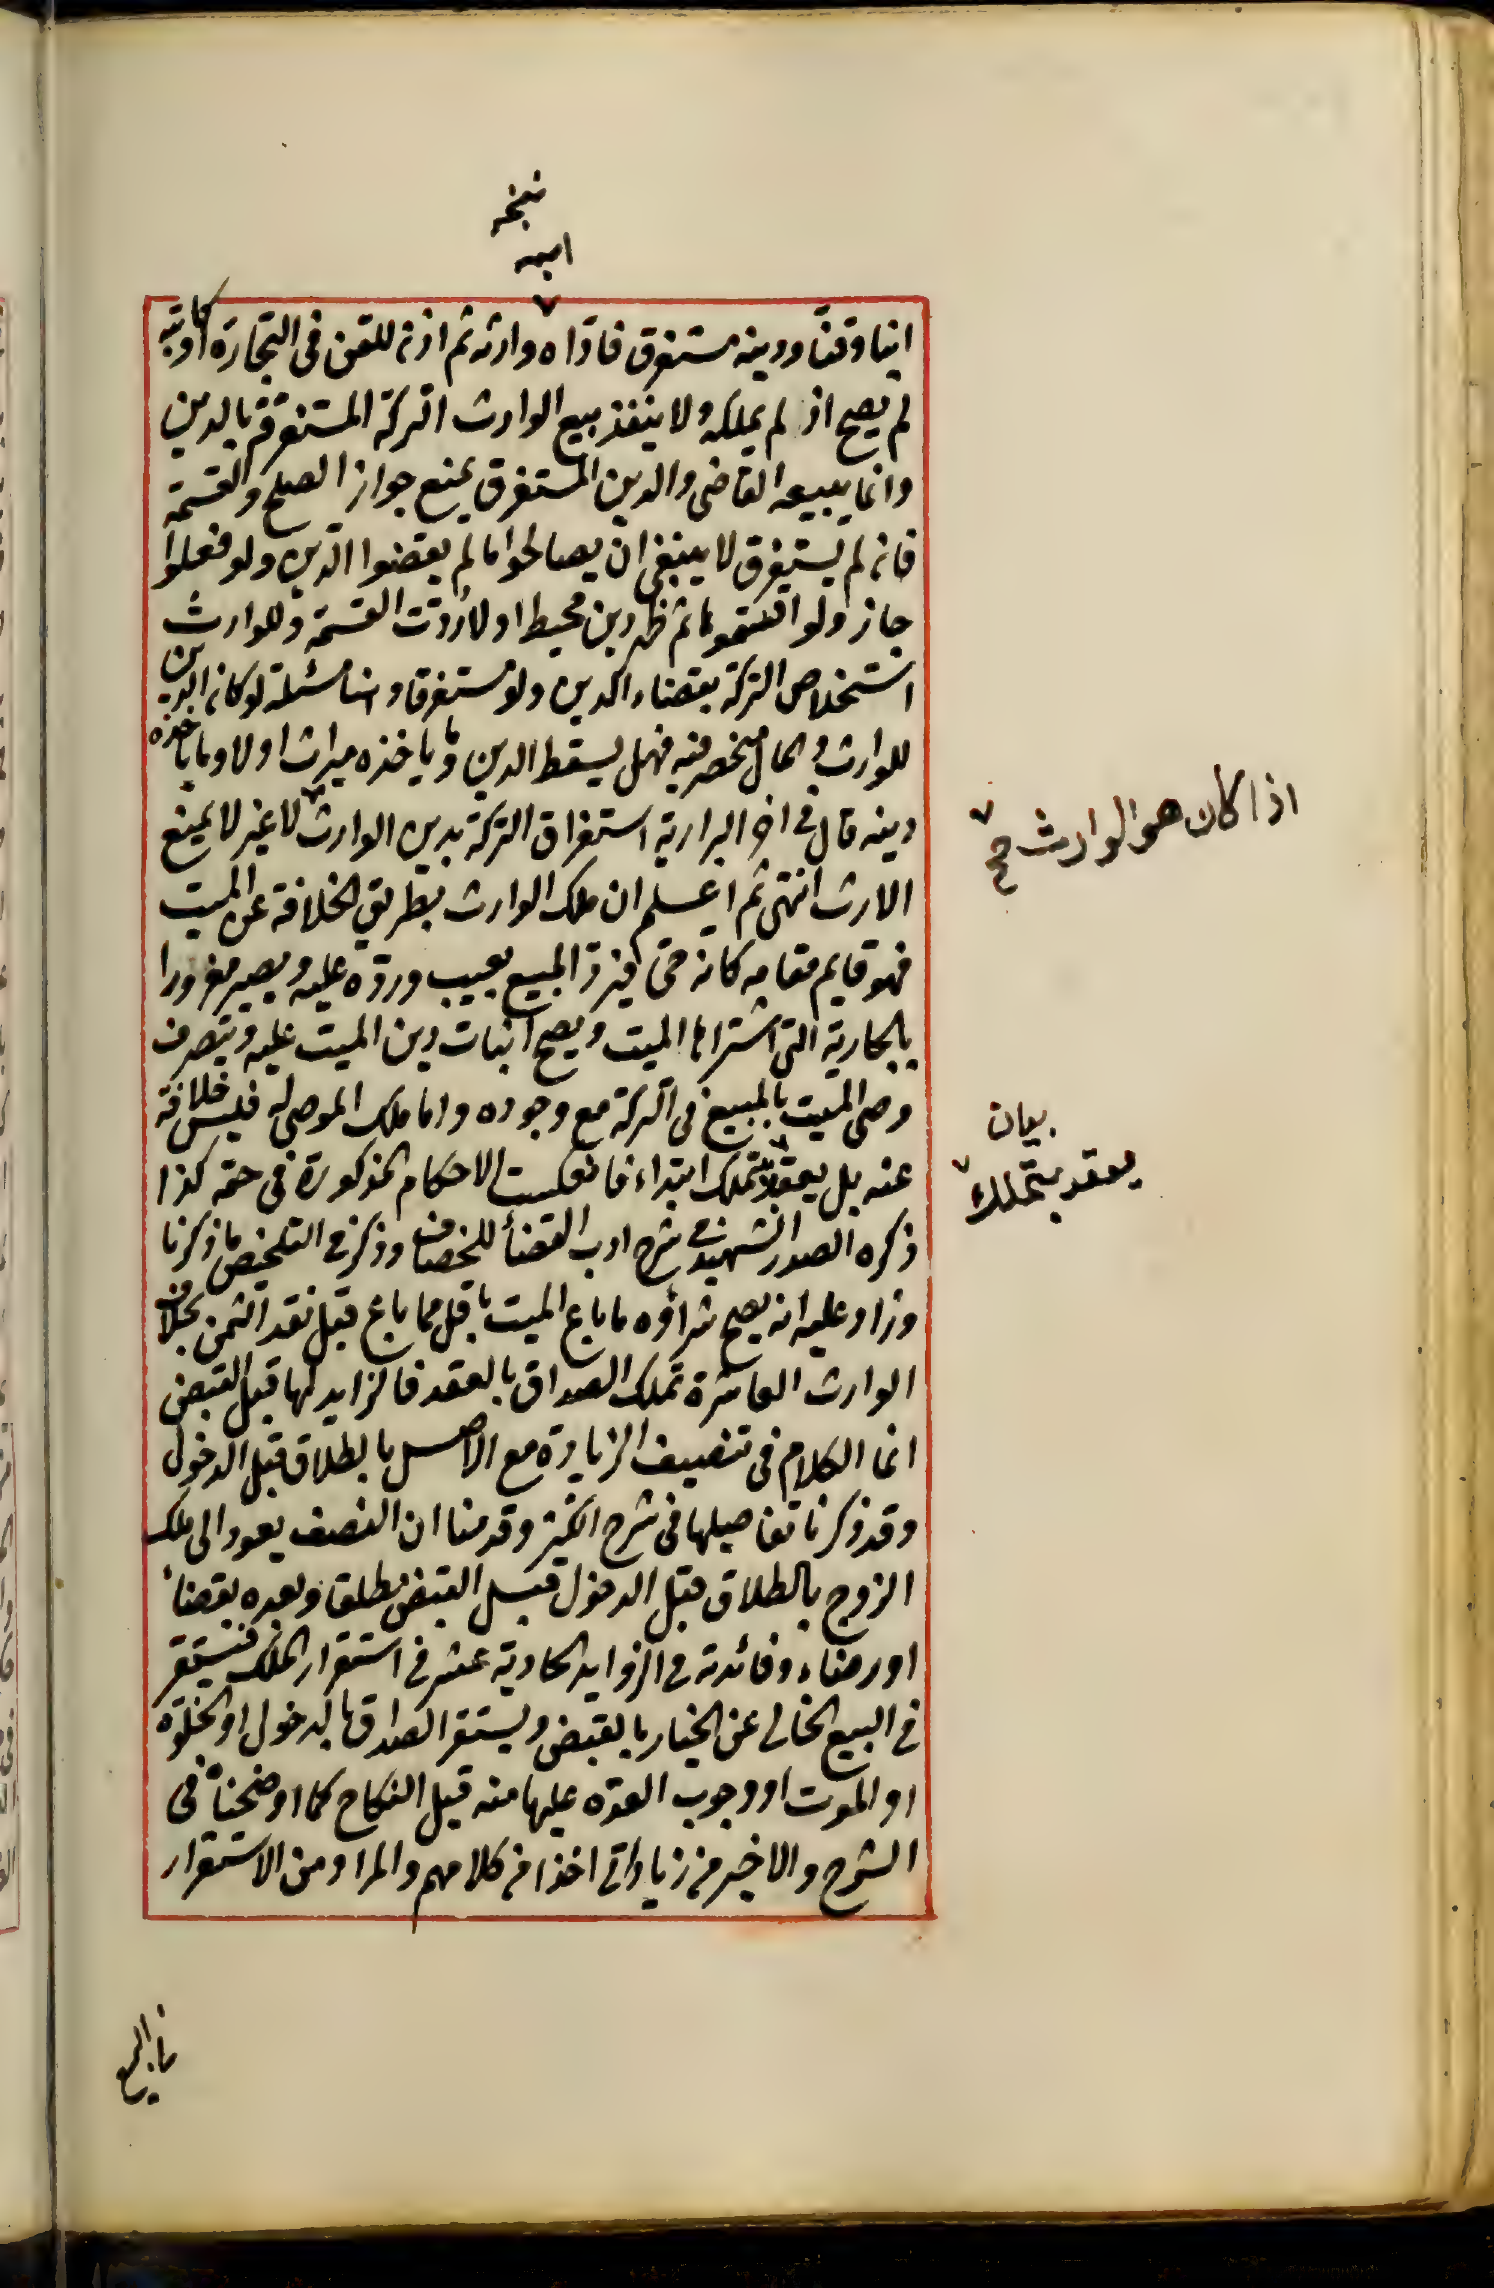 نسخة
ابنه
ابنا وقنا ودينه مستغرق فاداه وارثه ثم اذن للقن في التجارة او كاتبه
لم يصح اذ لم يملكه ولا ينفذ بيع الوارث التركة المستغرقة بالدين
وانما يبيعه القاضي والدين المستغرق يمنع جواز الصلح والقسمة
فان لم يستغرق لا ينبغي ان يصالحوا ما لم يقضوا الدين ولو فعلوا
جاز ولو اقتسموها ثم ظهر دين محيط او لا ردت القسمة وللوارث
استخلاص التركة بقضاء الدين ولو مستغرقا وهنا مسئلة لو كان الدين
للوارث والمال منحصر فيه فهل يسقط الدين وما ياخذه ميراث او لا وما ياخذه
دينه قال في اخر البزازية استغراق التركة بدين الوارث لا غير لا يمنع
الارث انتهى ثم اعلم ان ملك الوارث بطريق الخلافة عن الميت
فهو قايم مقامه كانه حي فيرد المبيع بعيب ورد عليه ويصير مغرورا
بالجارية التي اشتراها الميت ويصح اثبات دين الميت عليه ويتصرف
وصي الميت بالمبيع في التركة مع وجوده واما ملك الموصى له فليس خلافة
عنه بل بعقد يتملك ابتداء فانعكست الاحكام المذكورة في حقه كذا
ذكره الصدر الشهيد في شرح ادب القضأ للخصاف وذكر في التلخيص ما ذكرنا
وزاد عليه انه يصح شراؤه ما باع الميت باقل مما باع قبل نقد الثمن بخلاف
الوارث العاشرة تملك الصداق بالعقد فالزايد لها قبل القبض
انما الكلام في تنصيف الزيادة مع الاصل بالطلاق قبل الدخول
وقد ذكرنا تفاصيلها في شرح الكنز وقدمنا ان النصف يعود الى ملك
الزوج بالطلاق قبل الدخول قبل القبض مطلقا وبعده بقضأ
او رضاء وفائدته في الزوايد الحادية عشر في استقرار الملك فيستقر
في البيع الخالي عن الخيار بالقبض ويستقر الصداق بالدخول او الخلوة
او الموت او وجوب العدة عليها منه قبل النكاح كما اوضحناه في
الشرح والاخير من زياداتي اخذا من كلامهم والمراد من الاستقرار
اذا كان هو الوارث صح
بيان
بعقد يتملك